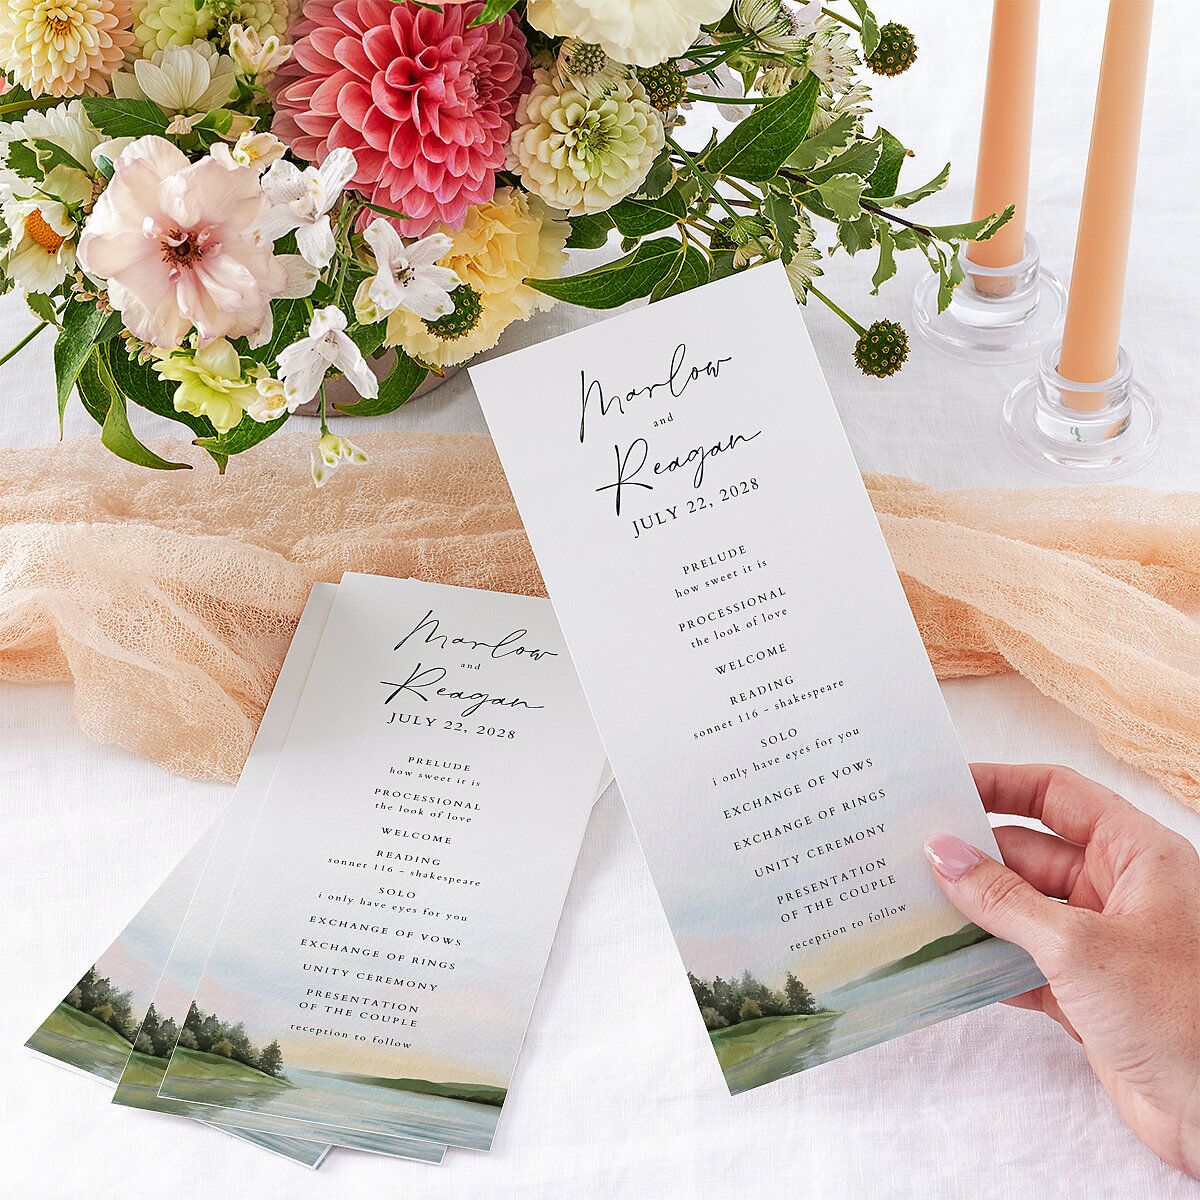 Marlow
and
Reagan
JULY 22, 2028
PRELUDE
how sweet it is
PROCESSIONAL
the look of love
WELCOME
READING
sonnet 116 - shakespeare
SOLO
i only have eyes for you
EXCHANGE OF VOWS
EXCHANGE OF RINGS
UNITY CEREMONY
PRESENTATION
OF THE COUPLE
reception to follow
Marlow
and
Reagan
JULY 22, 2028
PRELUDE
how sweet it is
PROCESSIONAL
the look of love
WELCOME
READING
sonnet 116 - shakespeare
SOLO
i only have eyes for you
EXCHANGE OF VOWS
EXCHANGE OF RINGS
UNITY CEREMONY
PRESENTATION
OF THE COUPLE
reception to follow